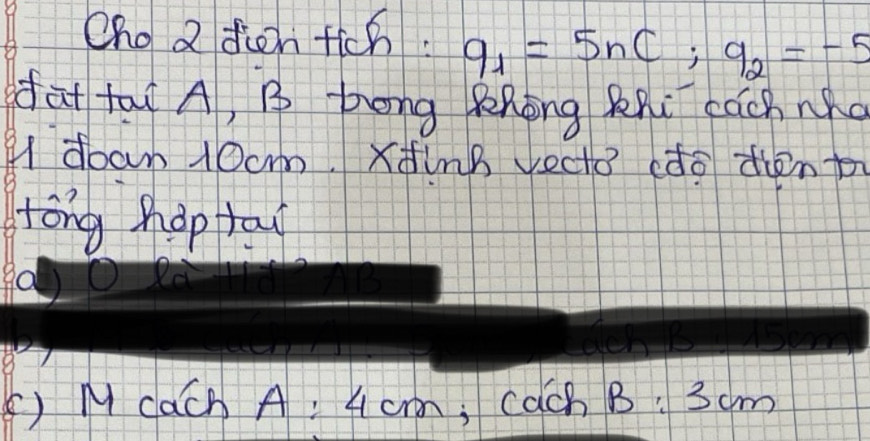 Cho 2 điện tích : q₁ = 5nC ; q₂ = -5
đặt tại A, B trong không khí cách nha
1 đoạn 10cm. Xđịnh vectơ cđộ điện tr
tổng hợp tại
a) O là tđ² AB
b) cách A : cách B : 15cm
c) M cách A : 4 cm ; cách B : 3 cm